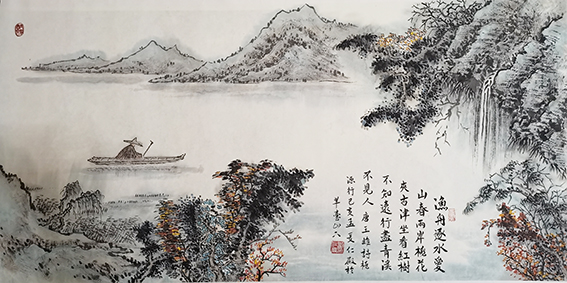 漁舟逐水愛
山春兩岸桃花
夾古津坐看紅樹
不知遠行盡青溪
不見人唐王維詩桃
源行己亥孟夏